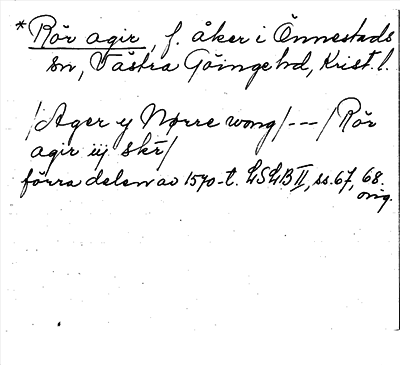 * Rör agir, f. åker i Önnestads
sn, Västra Göinge hd, Krist. l.
/Ager y Nørre wong/---/Rör
agir iij skr̄/
förra delen av 1570-t. LSLB II, ss. 67, 68.
orig.